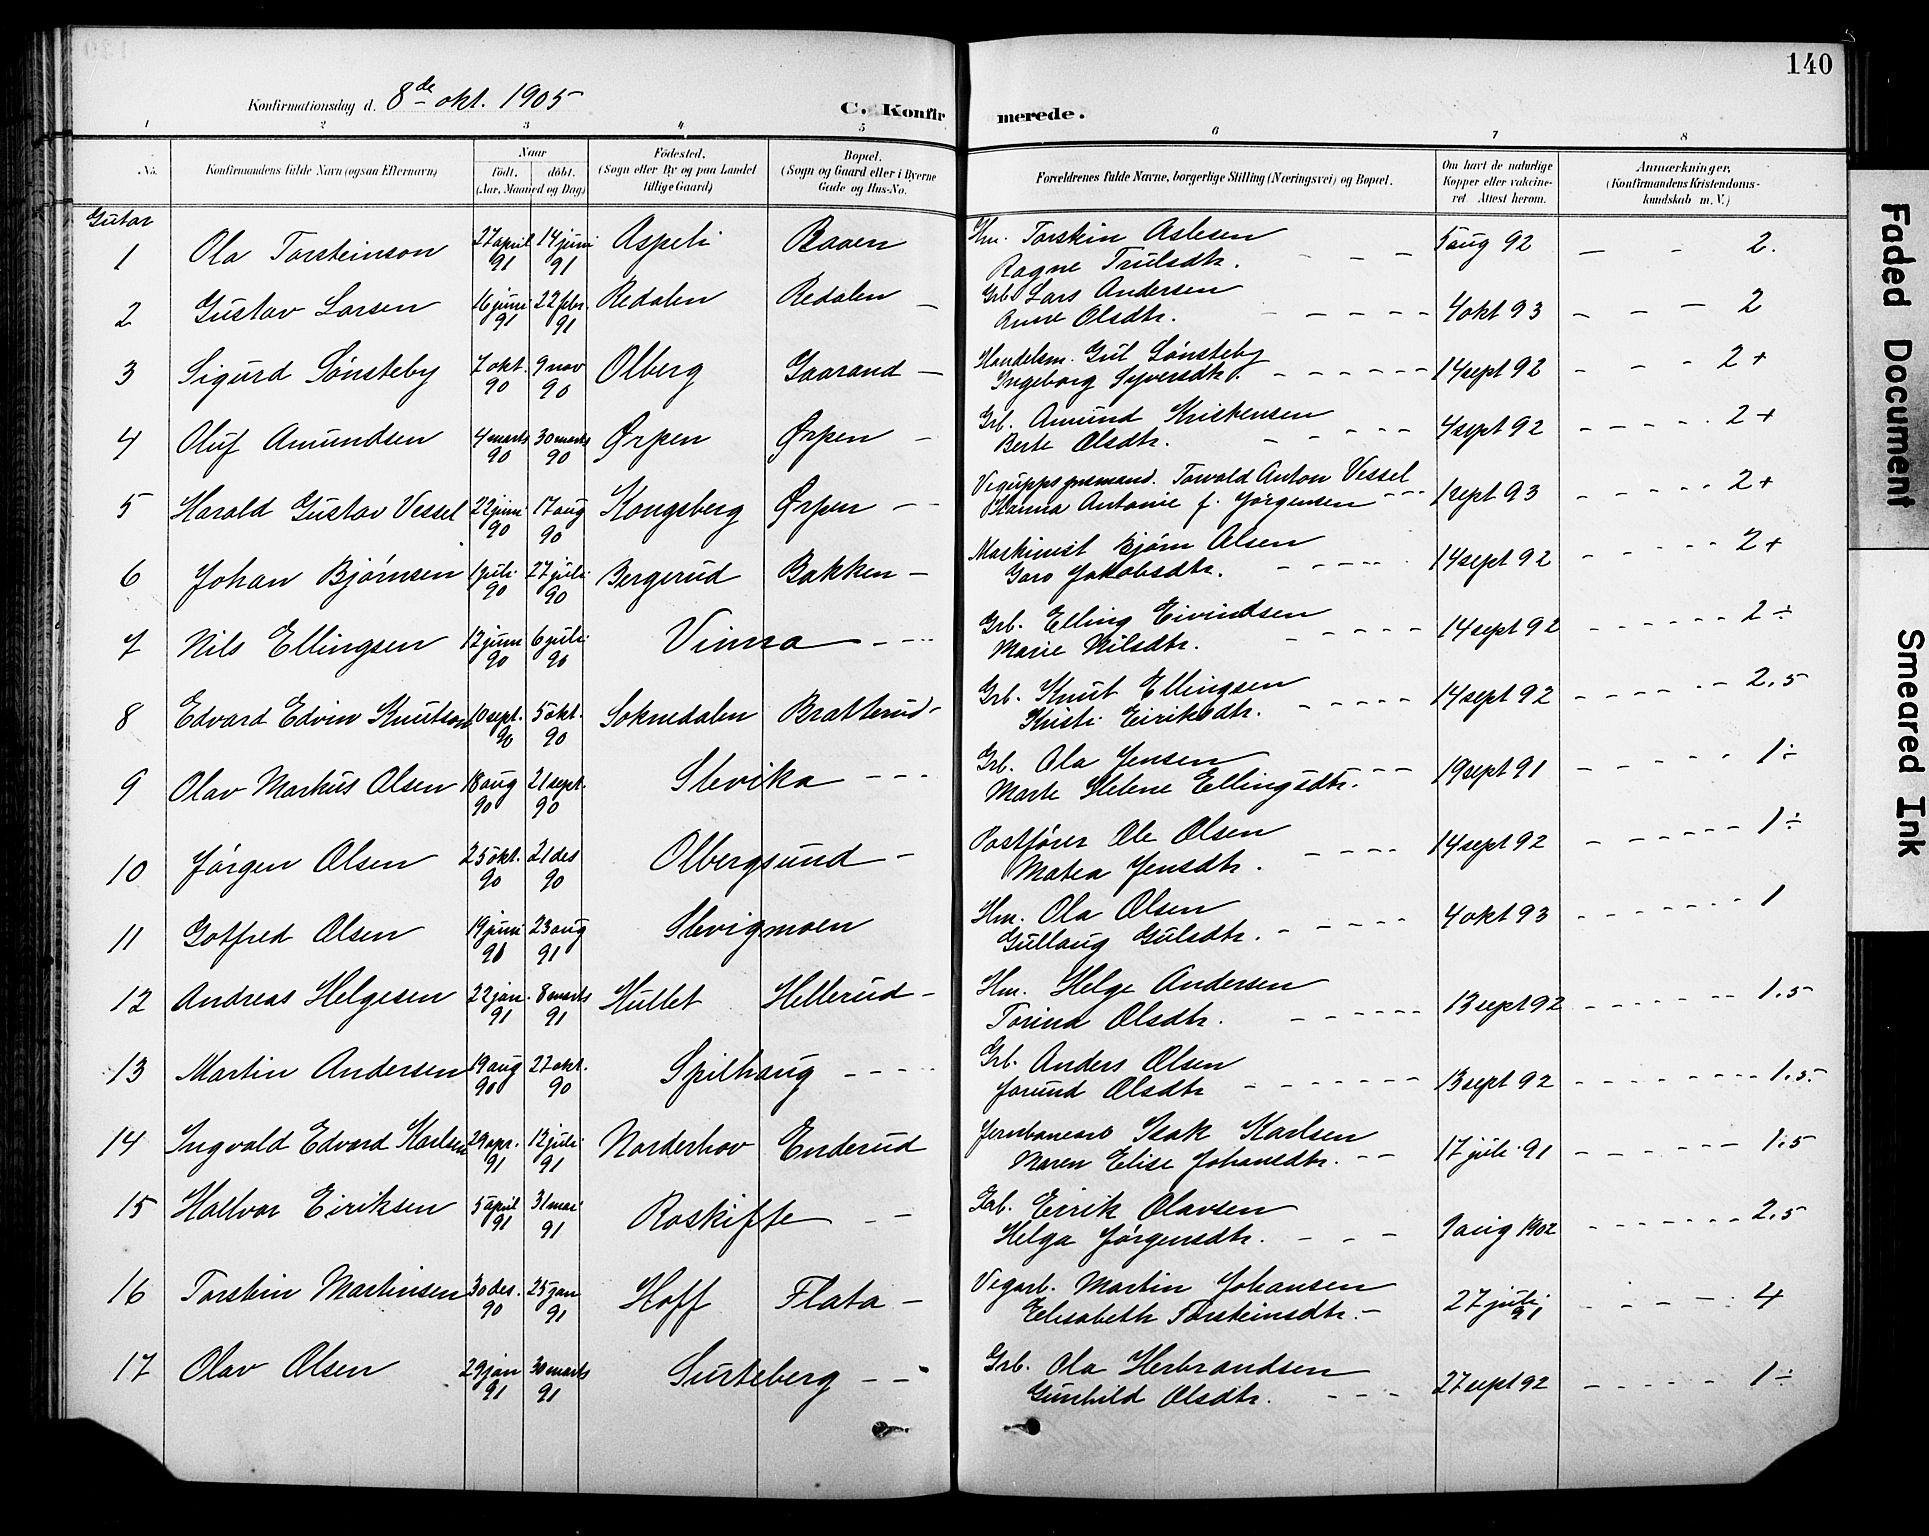 140
Konfirmationsdag d. 8de okt. 1905
C. Konfirmerede.
1 2 3 4 5 6 7 8
No. Konfirmandens fulde Navn (ogsaa Efternavn) Naar født. døbt. (Aar, Maaned og Dag) Fødested. (Sogn eller By og paa Landet tillige Gaard) Bopæl. (Sogn og Gaard eller i Byerne Gade og Hus-No. Forældrenes fulde Navne, borgerlige Stilling (Næringsvei) og Bopæl. Om havt de naturlige Kopper eller vakcineret. Attest herom. Anmærkninger. (Konfirmandens Kristendomskundskab m. V.)
Gutar
1 Ola Torsteinson 27 april 91 14 juni 91 Aspeli Baaen Hm. Torstein Aslesen Ragne Trulsdtr. 5 aug 92 2.
2 Gustav Larsen 16 juni 91 22 febr. 91 Redalen Redalen Grb. Lars Andersen Olsdtr. 4 okt 93 2
3 Sigurd Sønsteby 7 okt. 90 9 nov 90 Olberg Gaarand Handelsm. Gul Sønsteby Ingeborg Syversdtr. 14 sept 92 2+
4 Oluf Amundsen 4 marts 90 30 marts 90 Ørpen Ørpen Grb. Amund Kristensen Berte Olsdtr. 4 sept 92 2+
5 Harald Gustav Vessel 22 juni 90 17 aug 90 Kongsberg Ørpen Torvald Anton Vessel Hanna Antonie f. Jørgensen 1 sept 93 2+
6 Johan Bjørnsen 1 juli 90 27 juli 90 Bergerud Bakken Maskinist Bjørn Olsen Goro Jakobsdtr. 14 sept 92 2+
7 Nils Ellingsen 12 juni 90 6 juli 90 Vinna Grb. Elling Eivindsen Marie Nilsdtr. 14 sept 92 2÷
8 Edvard Edvin Knutson 10 sept. 90 5 okt. 90 Soknedalen Bratterud Grb. Knut Ellingsen Kristi Eiriksdtr. 14 sept 92 2.5
9 Olav Markus Olsen 18 aug 90 21 sept. 90 Slevika Grb. Ola Jensen Marte Helene Ellingsdtr. 19 sept 91 1÷
10 Jørgen Olsen 25 okt. 90 21 des 90 Olbergsund Postfører Ole Olsen Matea Jensdtr. 14 sept 92 1÷
11 Gotfred Olsen 19 juni 91 23 aug 91 Slevigmoen Hm. Ola Olsen Gullaug Gulsdtr. 4 okt 93 1
12 Andreas Helgesen 22 jan. 91 8 marts 91 Hullet Hellerud Hm. Helge Andersen Torina Olsdtr. 13 sept 92 1.5
13 Martin Andersen 19 aug 90 27 okt. 90 Spilhaug Grb. Anders Olsen Jorund Olsdtr 13 sept 92 1.5.
14 Ingvald Edvard Karlsen 29 apr. 91 12 juli 91 Norderhov Enderud Jernbanearb Isak Karlsen Maren Elise Johansdtr. 17 juli 91 1.5
15 Hallvar Eiriksen 5 april 91 31 mai 91 Roskifte Eirik Olavsen Helga Jørgensdtr. 9 aug 1902 2.5
16 Torstein Martinsen 30 des. 90 25 jan 91 Hoff Flata Vegarb. Martin Johansen Elisabeth Torsteinsdtr. 27 juli 91 4
17 Olav Olsen 29 jan 91 30 marts 91 Surteberg Grb. Ola Herbrandsen Gunhild Olsdtr. 27 sept 92 1÷
Faded Document
Smeared Ink